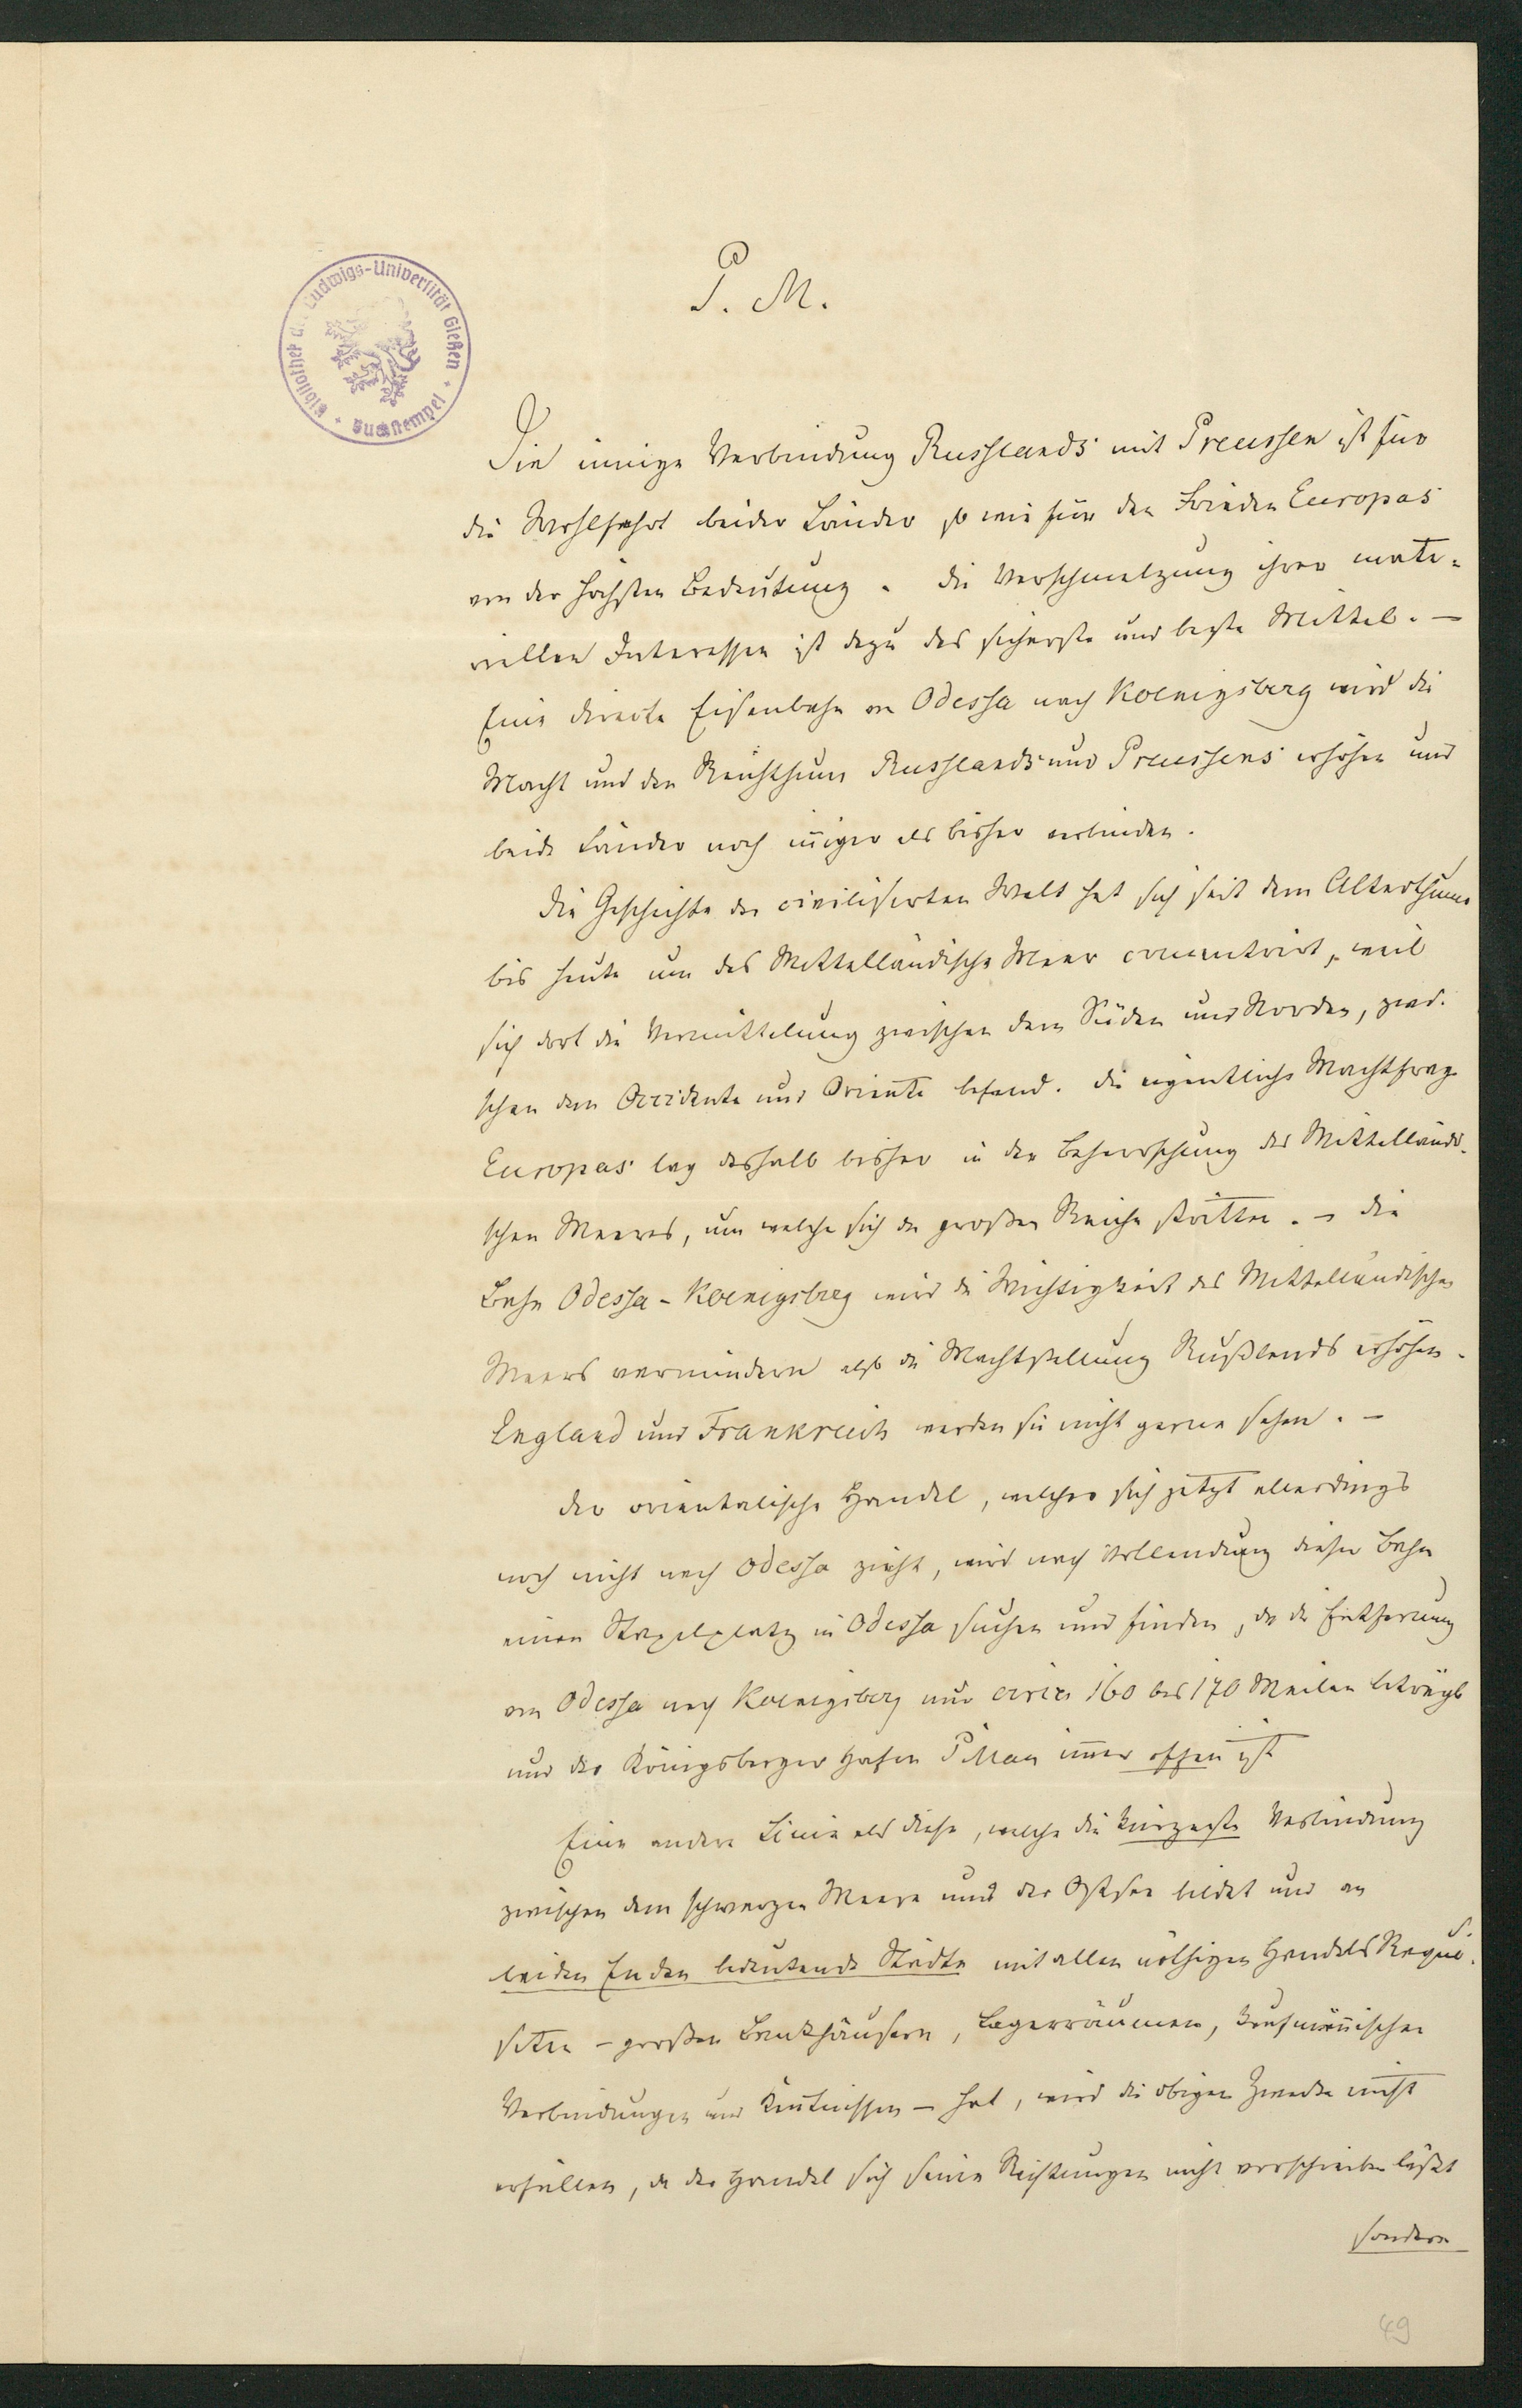 Bibliothek der Ludwigs-Universität Gießen + Buchstempel +
P. M.
Die innige Verbindung Russlands mit Preussen ist für
die Wohlfahrt beider Länder so wie für den Frieden Europas
von der höchsten Bedeutung. Die Verschmelzung ihrer mate-
riellen Interessen ist dazu das sicherste und beste Mittel. —
Eine directe Eisenbahn von Odessa nach Koenigsberg wird die
Macht und den Reichthum Russlands und Preussens erhöhen und
beide Länder noch iñiger als bisher verbinden.
Die Geschichte der civilisirten Welt hat sich seit dem Alterthume
bis heute um das Mittelländische Meer concentrirt, weil
sich dort die Vermittelung zwischen dem Süden und Norden, zwi-
schen dem Occidente und Oriente befand. Die eigentliche Machtfrage
Europas lag deshalb bisher in der Beherrschung des Mittelländi-
schen Meeres, um welche sich die großen Reiche stritten. — Die
Bahn Odessa - Koenigsberg wird die Wichtigkeit des Mittelländischen
Meers vermindern also die Machtstellung Rußlands erhöhen.
England und Frankreich werden sie nicht gerne sehen. —
Der orientalische Handel, welcher sich jetzt allerdings
noch nicht nach Odessa zieht, wird nach Vollendung dieser Bahn
einen Stapelplatz in Odessa suchen und finden, da die Entfernung
von Odessa nach Koenigsberg nur circa 160 bis 170 Meilen beträgt
und der Königsberger Hafen Pillau im̃er offen ist
Eine andere Linie als diese, welche die kürzeste Verbindung
zwischen dem schwarzen Meere und der Ostsee bildet und an
beiden Enden bedeutende Städte mit allen nöthigen Handels Requi-
siten - großen Bankhäusern, Lagerräumen, kaufmäñischen
Verbindungen und Keñtnissen — hat, wird die obigen Zwecke nicht
erfüllen, da der Handel sich seine Richtungen nicht vorschreiben läßt
sondern
49